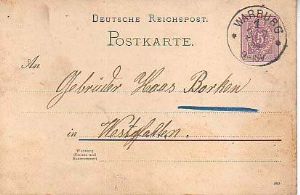 DEUTSCHE REICHSPOST.
POSTKARTE.
WARBURG
An
Gebrüder Haas Borken
in Westfalen.
Wohnung
(Strasse und
Hausnummer)